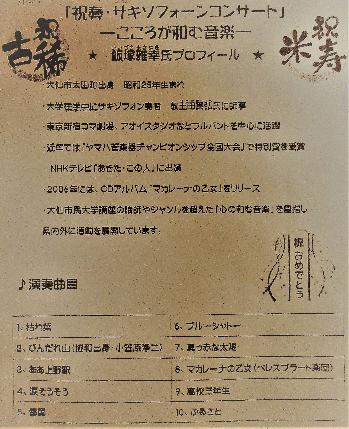 「祝寿・サキソフォーンコンサート」
―こころが和む音楽―
祝 古稀
祝 米寿
★ 飯塚雅幸氏プロフィール ★
・大仙市太田町出身 昭和25年生まれ
・大学在学中にサキソフォン奏者 に師事
・東京新宿コマ劇場、アオイスタジオなどフルバンドを中心に活躍
・近年では「ヤマハ管楽器チャンピオンシップ全国大会」で特別賞を受賞
NHKテレビ「あきた・この人」に出演
・2006年には、CDアルバム「マカレーナの乙女」をリリース
・大仙市民大学講座の講師やジャンルを超えた「心の和む音楽」を目指し
県内外に活動を展開しています。
祝 おめでとう
♪演奏曲目
1、枯れ葉
2、ひんだれ山(協和出身・小笠原
3、ああ上野駅
4、涙そうそう
5、
6、ブルーシャトー
7、真っ赤な太陽
8、マカレーナの乙女(ペレスプラード楽団)
9、高校三年生
10、ふるさと